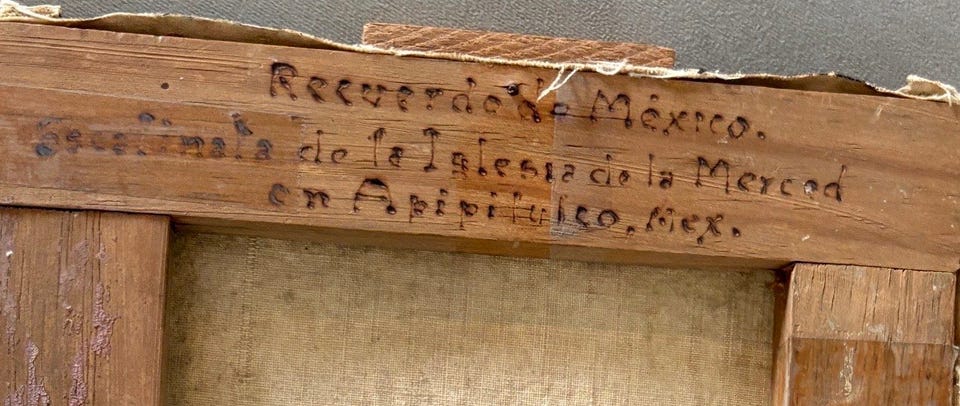 Recuerdo de México.
de la Iglesia de la Merced
en Apipilulco, Mex.